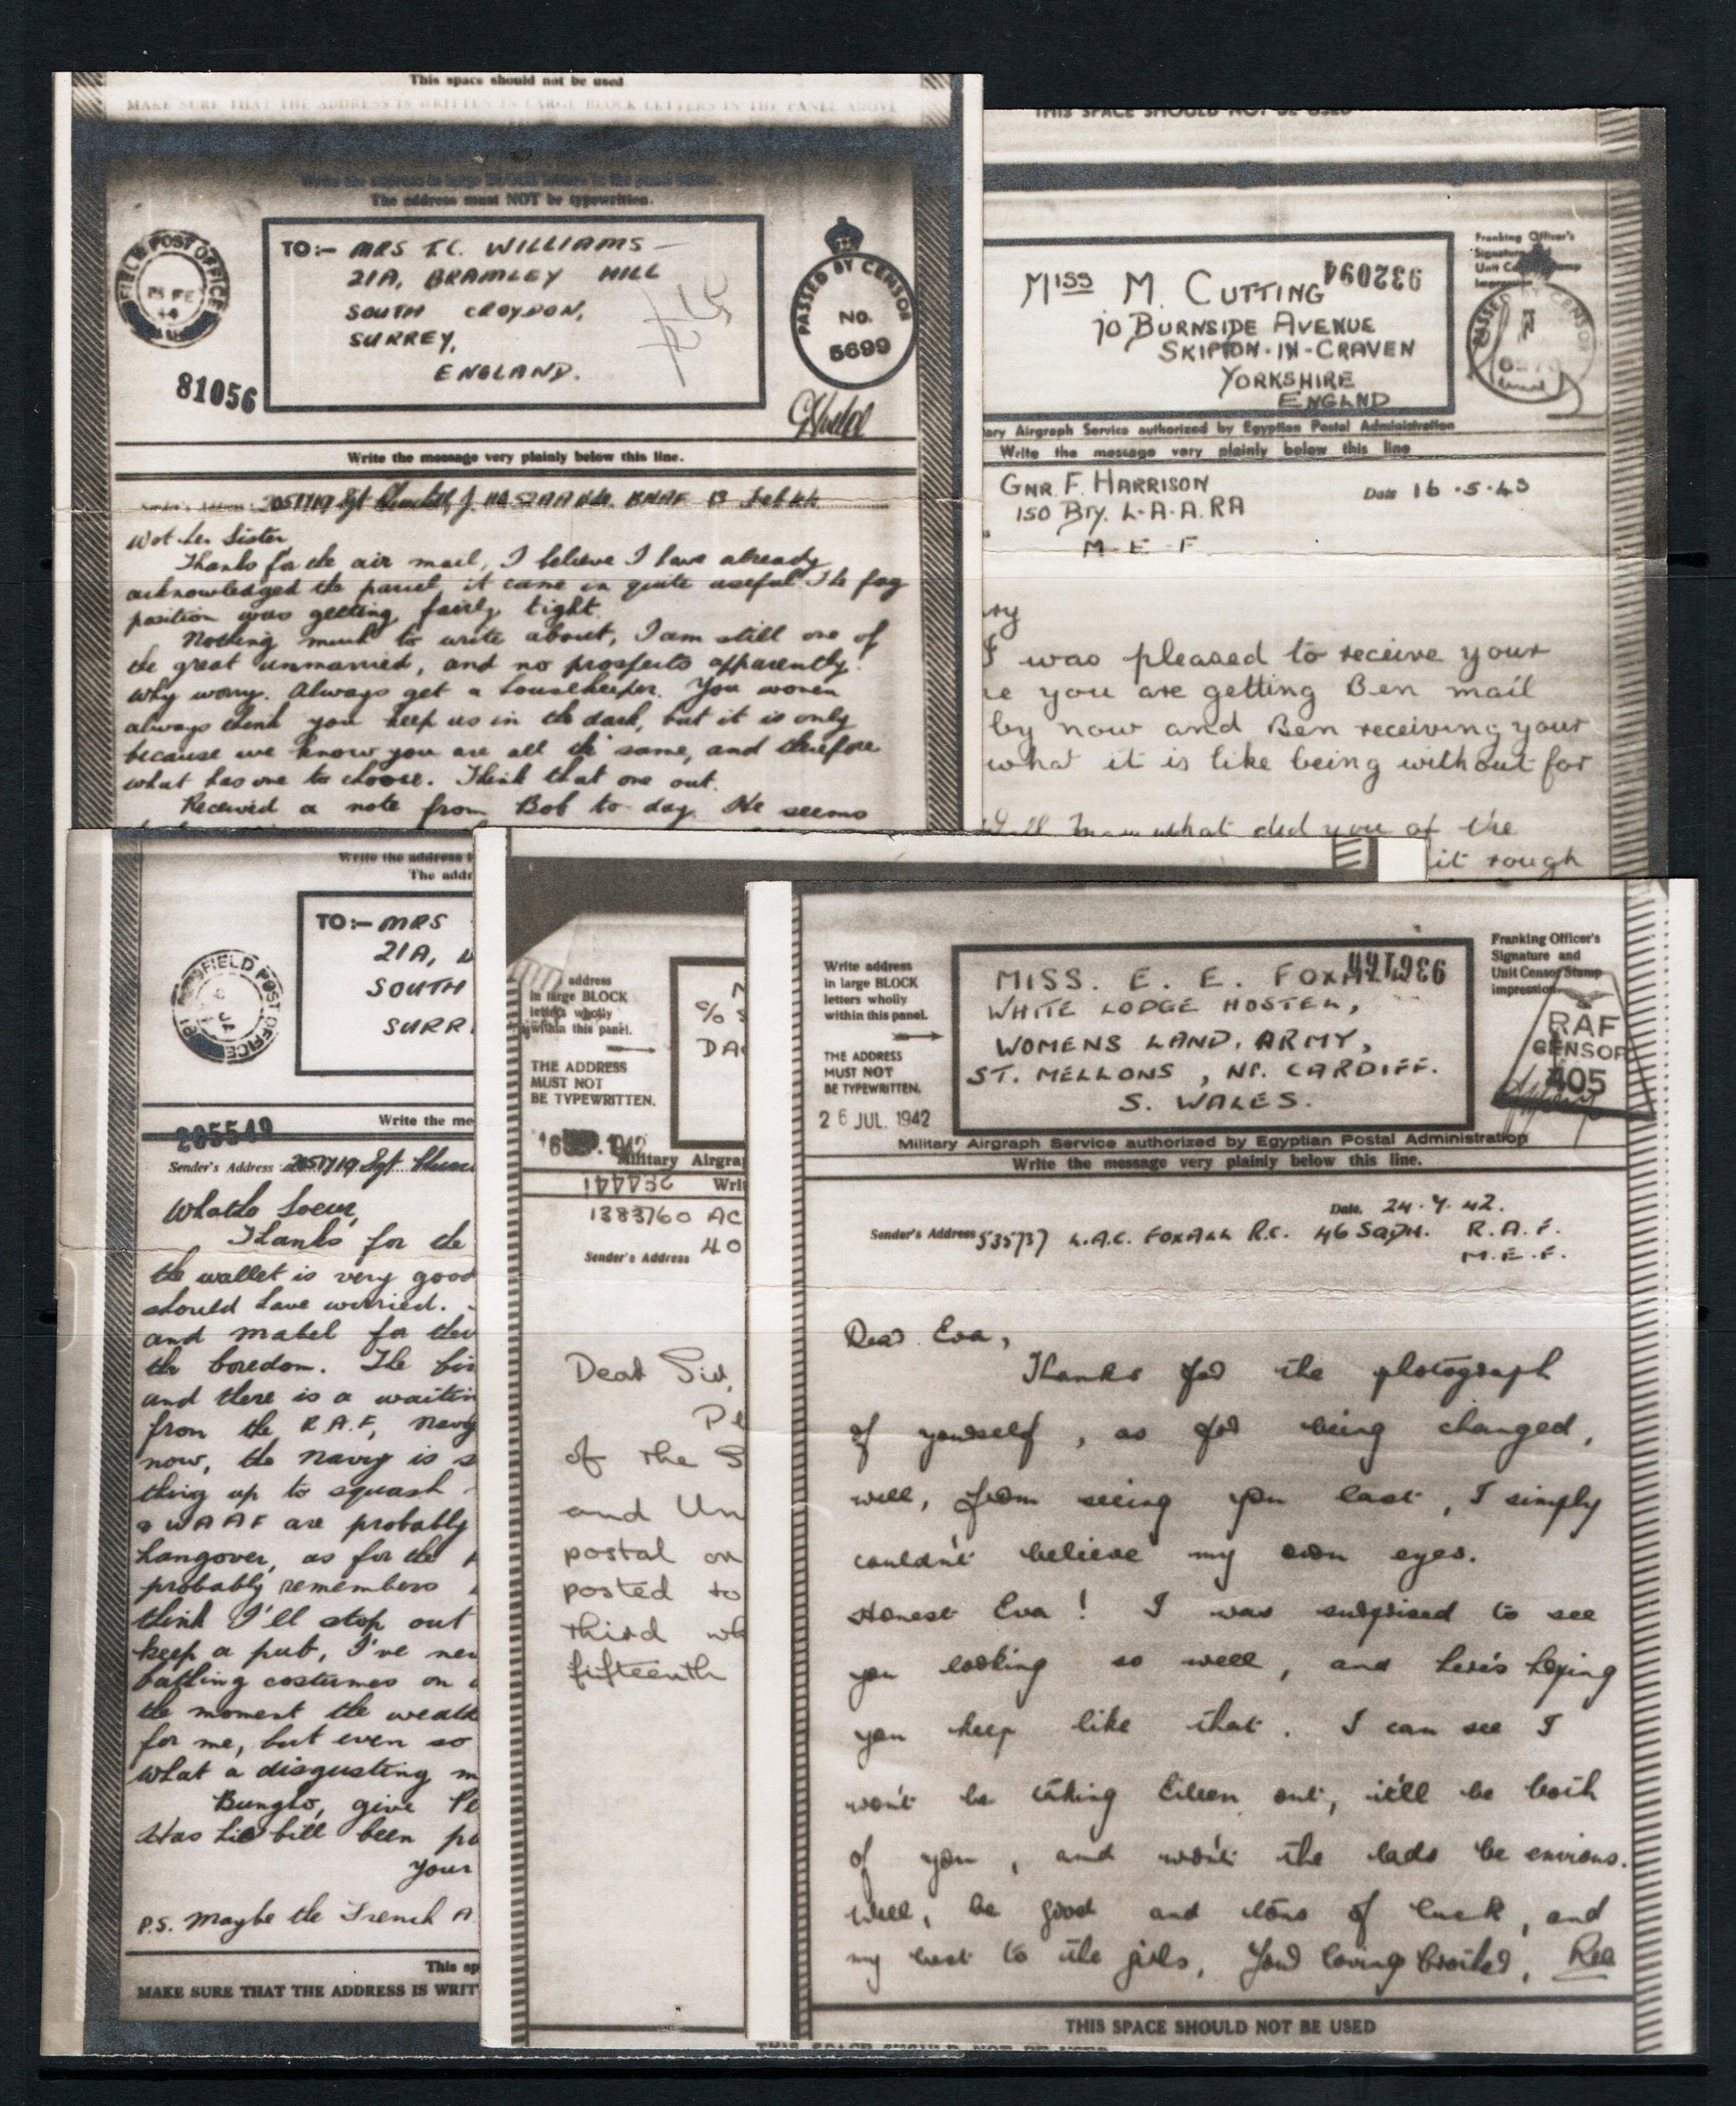 This space should not be used
MAKE SURE THAT THE ADDRESS IS WRITTEN IN LARGE BLOCK LETTERS IN THE PANEL ABOVE
Write the address in large BLOCK letters in the panel below.
The address must NOT be typewritten.
FIELD POST OFFICE
TO:- MRS T.C. WILLIAMS
21A, BRAMLEY HILL
SOUTH CROYDON,
SURREY,
ENGLAND.
PASSED BY CENSOR
No.
5699
81056
Write the message very plainly below this line.
2051719 Sgt
Wot ho Sister
Thanks for the air mail, I believe I have already
acknowledged the parcel, it came in quite useful. The fag
position was getting fairly tight.
Nothing much to write about, I am still one of
the great unmarried, and no prospects apparently.
Why worry. Always get a housekeeper. You women
always think you keep us in the dark, but it is only
because we know you are all the same, and therefore
what has one to choose. Think that one out.
Received a note from Bob to day. He seems
THIS SPACE SHOULD NOT BE USED
Franking Officer's
Signature
Unit Censor Stamp
Impression
MISS M. CUTTING
932094
70 BURNSIDE AVENUE
SKIPTON-IN-CRAVEN
YORKSHIRE
ENGLND
PASSED BY CENSOR
ary Airgraph Service authorized by Egyptian Postal Administration
Write the message very plainly below this line
GNR. F. HARRISON
Date 16.5.43
150 Bty. L.A.A. RA
M.E.F
ry
I was pleased to receive your
re you are getting Ben mail
by now and Ben receiving your
what it is like being without for
what did you of the
it rough
Write the address
The addr
FIELD POST OFFICE
TO:- MRS
21A,
SOUTH
SURR
Write the me
205549
Sender's Address 2051719 Sgt.
Whatho Soeur,
Thanks for the
the wallet is very good
should have worried.
and Mabel for the
the boredom. The
and there is a waitin
from the R.A.F, Navy
now, the Navy is s
thing up to squash
a WAAF are probably
hangover, as for the
probably remembers
think I'll stop out
keep a pub, I've nev
bathing costumes on
the moment the weath
for me, but even so
what a disgusting m
Bungho, give
Has his bill been
your
P.S. Maybe the French A
This sp
MAKE SURE THAT THE ADDRESS IS WRIT
address
in large BLOCK
letters wholly
within this panel.
THE ADDRESS
MUST NOT
BE TYPEWRITTEN.
c/o S
DA
1942
Military Airgra
234441
Writ
1383760 AC
Sender's Address 40
Dear Sir,
Pl
of the S
and Un
postal or
posted to
third wh
fifteenth
THIS SPACE SHOULD NOT BE USED
Write address
in large BLOCK
letters wholly
within this panel.
THE ADDRESS
MUST NOT
BE TYPEWRITTEN.
26 JUL 1942
MISS. E. E. FOXALL
WHITE LODGE HOSTEL,
WOMENS LAND. ARMY,
ST. MELLONS, NR. CARDIFF.
S. WALES.
Franking Officer's
Signature and
Unit Censor Stamp
impression.
RAF
CENSOR
405
Military Airgraph Service authorized by Egyptian Postal Administration
Write the message very plainly below this line.
Date. 24.7.42.
Sender's Address 535737 L.A.C. FOXALL R.C. 46 SQDN. R.A.F.
M.E.F.
Dear Eva,
Thanks for the photograph
of yourself, as for being changed,
well, from seeing you last, I simply
couldn't believe my own eyes.
Honest Eva! I was surprised to see
you looking so well, and here's hoping
you keep like that. I can see I
won't be taking Eileen out, it'll be both
of you, and won't the lads be envious.
Well, be good and tons of luck, and
my best to the girls, Your loving brother,
THIS SPACE SHOULD NOT BE USED